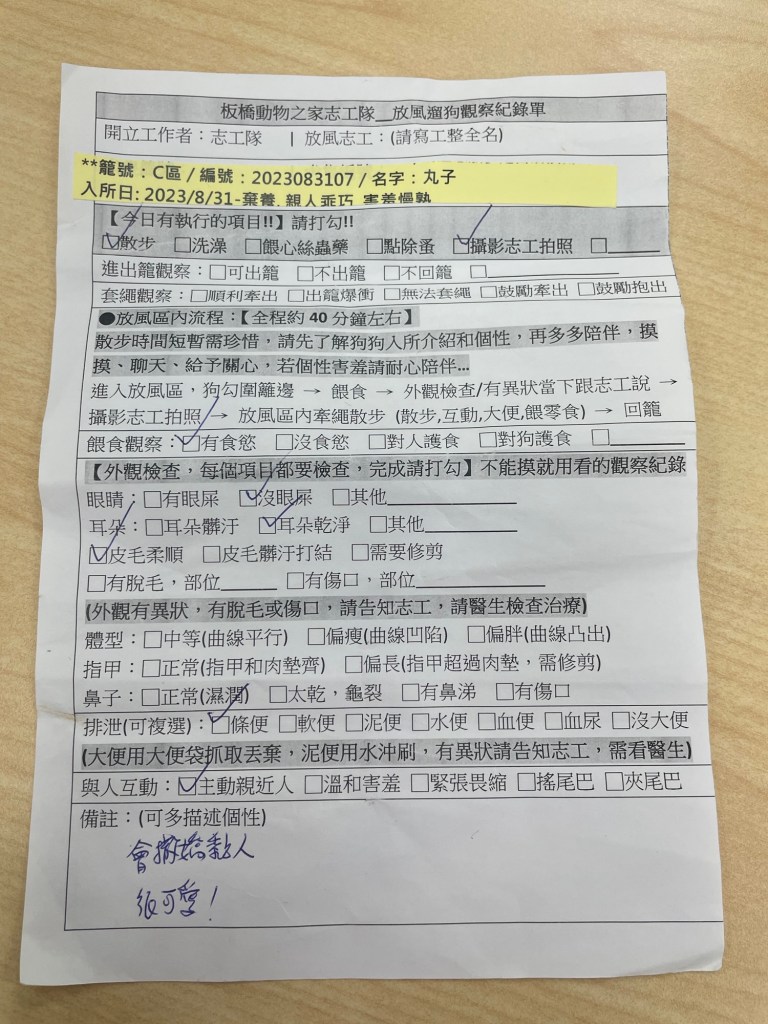 板橋動物之家志工隊__放風遛狗觀察紀錄單
開立工作者：志工隊 | 放風志工：(請寫工整全名)
**籠號：C區 / 編號：2023083107 / 名字：丸子
入所日: 2023/8/31-棄養, 親人乖巧, 害羞慢熟
【今日有執行的項目!!】請打勾!!
☑散步 □洗澡 □餵心絲蟲藥 □點除蚤 ☑攝影志工拍照 □______
進出籠觀察：□可出籠 □不出籠 □不回籠 □______________
套繩觀察：□順利牽出 □出籠爆衝 □無法套繩 □鼓勵牽出 □鼓勵抱出
●放風區內流程：【全程約 40 分鐘左右】
散步時間短暫需珍惜，請先了解狗狗入所介紹和個性，再多多陪伴，摸
摸、聊天、給予關心，若個性害羞請耐心陪伴...
進入放風區，狗勾圍籬邊 → 餵食 → 外觀檢查/有異狀當下跟志工說 →
攝影志工拍照 → 放風區內牽繩散步 (散步,互動,大便,餵零食) → 回籠
餵食觀察：☑有食慾 □沒食慾 □對人護食 □對狗護食 □________
【外觀檢查，每個項目都要檢查，完成請打勾】不能摸就用看的觀察紀錄
眼睛：□有眼屎 ☑沒眼屎 □其他______________
耳朵：□耳朵髒汙 ☑耳朵乾淨 □其他__________
☑皮毛柔順 □皮毛髒汙打結 □需要修剪
□有脫毛，部位______ □有傷口，部位______________
(外觀有異狀，有脫毛或傷口，請告知志工，請醫生檢查治療)
體型：□中等(曲線平行) □偏瘦(曲線凹陷) □偏胖(曲線凸出)
指甲：□正常(指甲和肉墊齊) □偏長(指甲超過肉墊，需修剪)
鼻子：□正常(濕潤) □太乾，龜裂 □有鼻涕 □有傷口
排泄(可複選)：☑條便 □軟便 □泥便 □水便 □血便 □血尿 □沒大便
(大便用大便袋抓取丟棄，泥便用水沖刷，有異狀請告知志工，需看醫生)
與人互動：☑主動親近人 □溫和害羞 □緊張畏縮 □搖尾巴 □夾尾巴
備註：(可多描述個性)
會撒嬌黏人
很可愛！